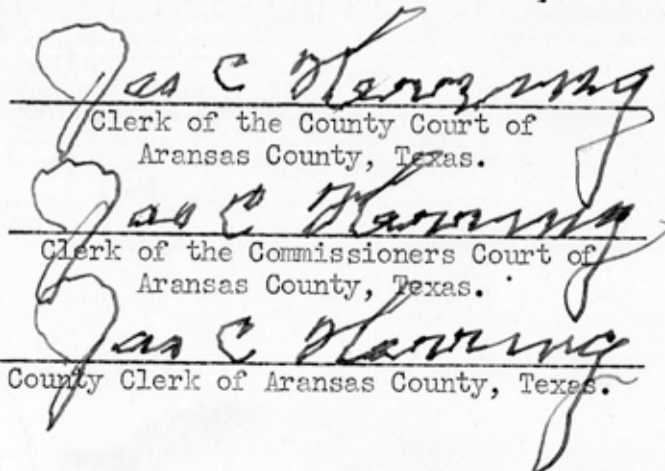 Jas C Herring
Clerk of the County Court of
Aransas County, Texas.
Jas C Herring
Clerk of the Commissioners Court of
Aransas County, Texas.
Jas C Herring
County Clerk of Aransas County, Texas.